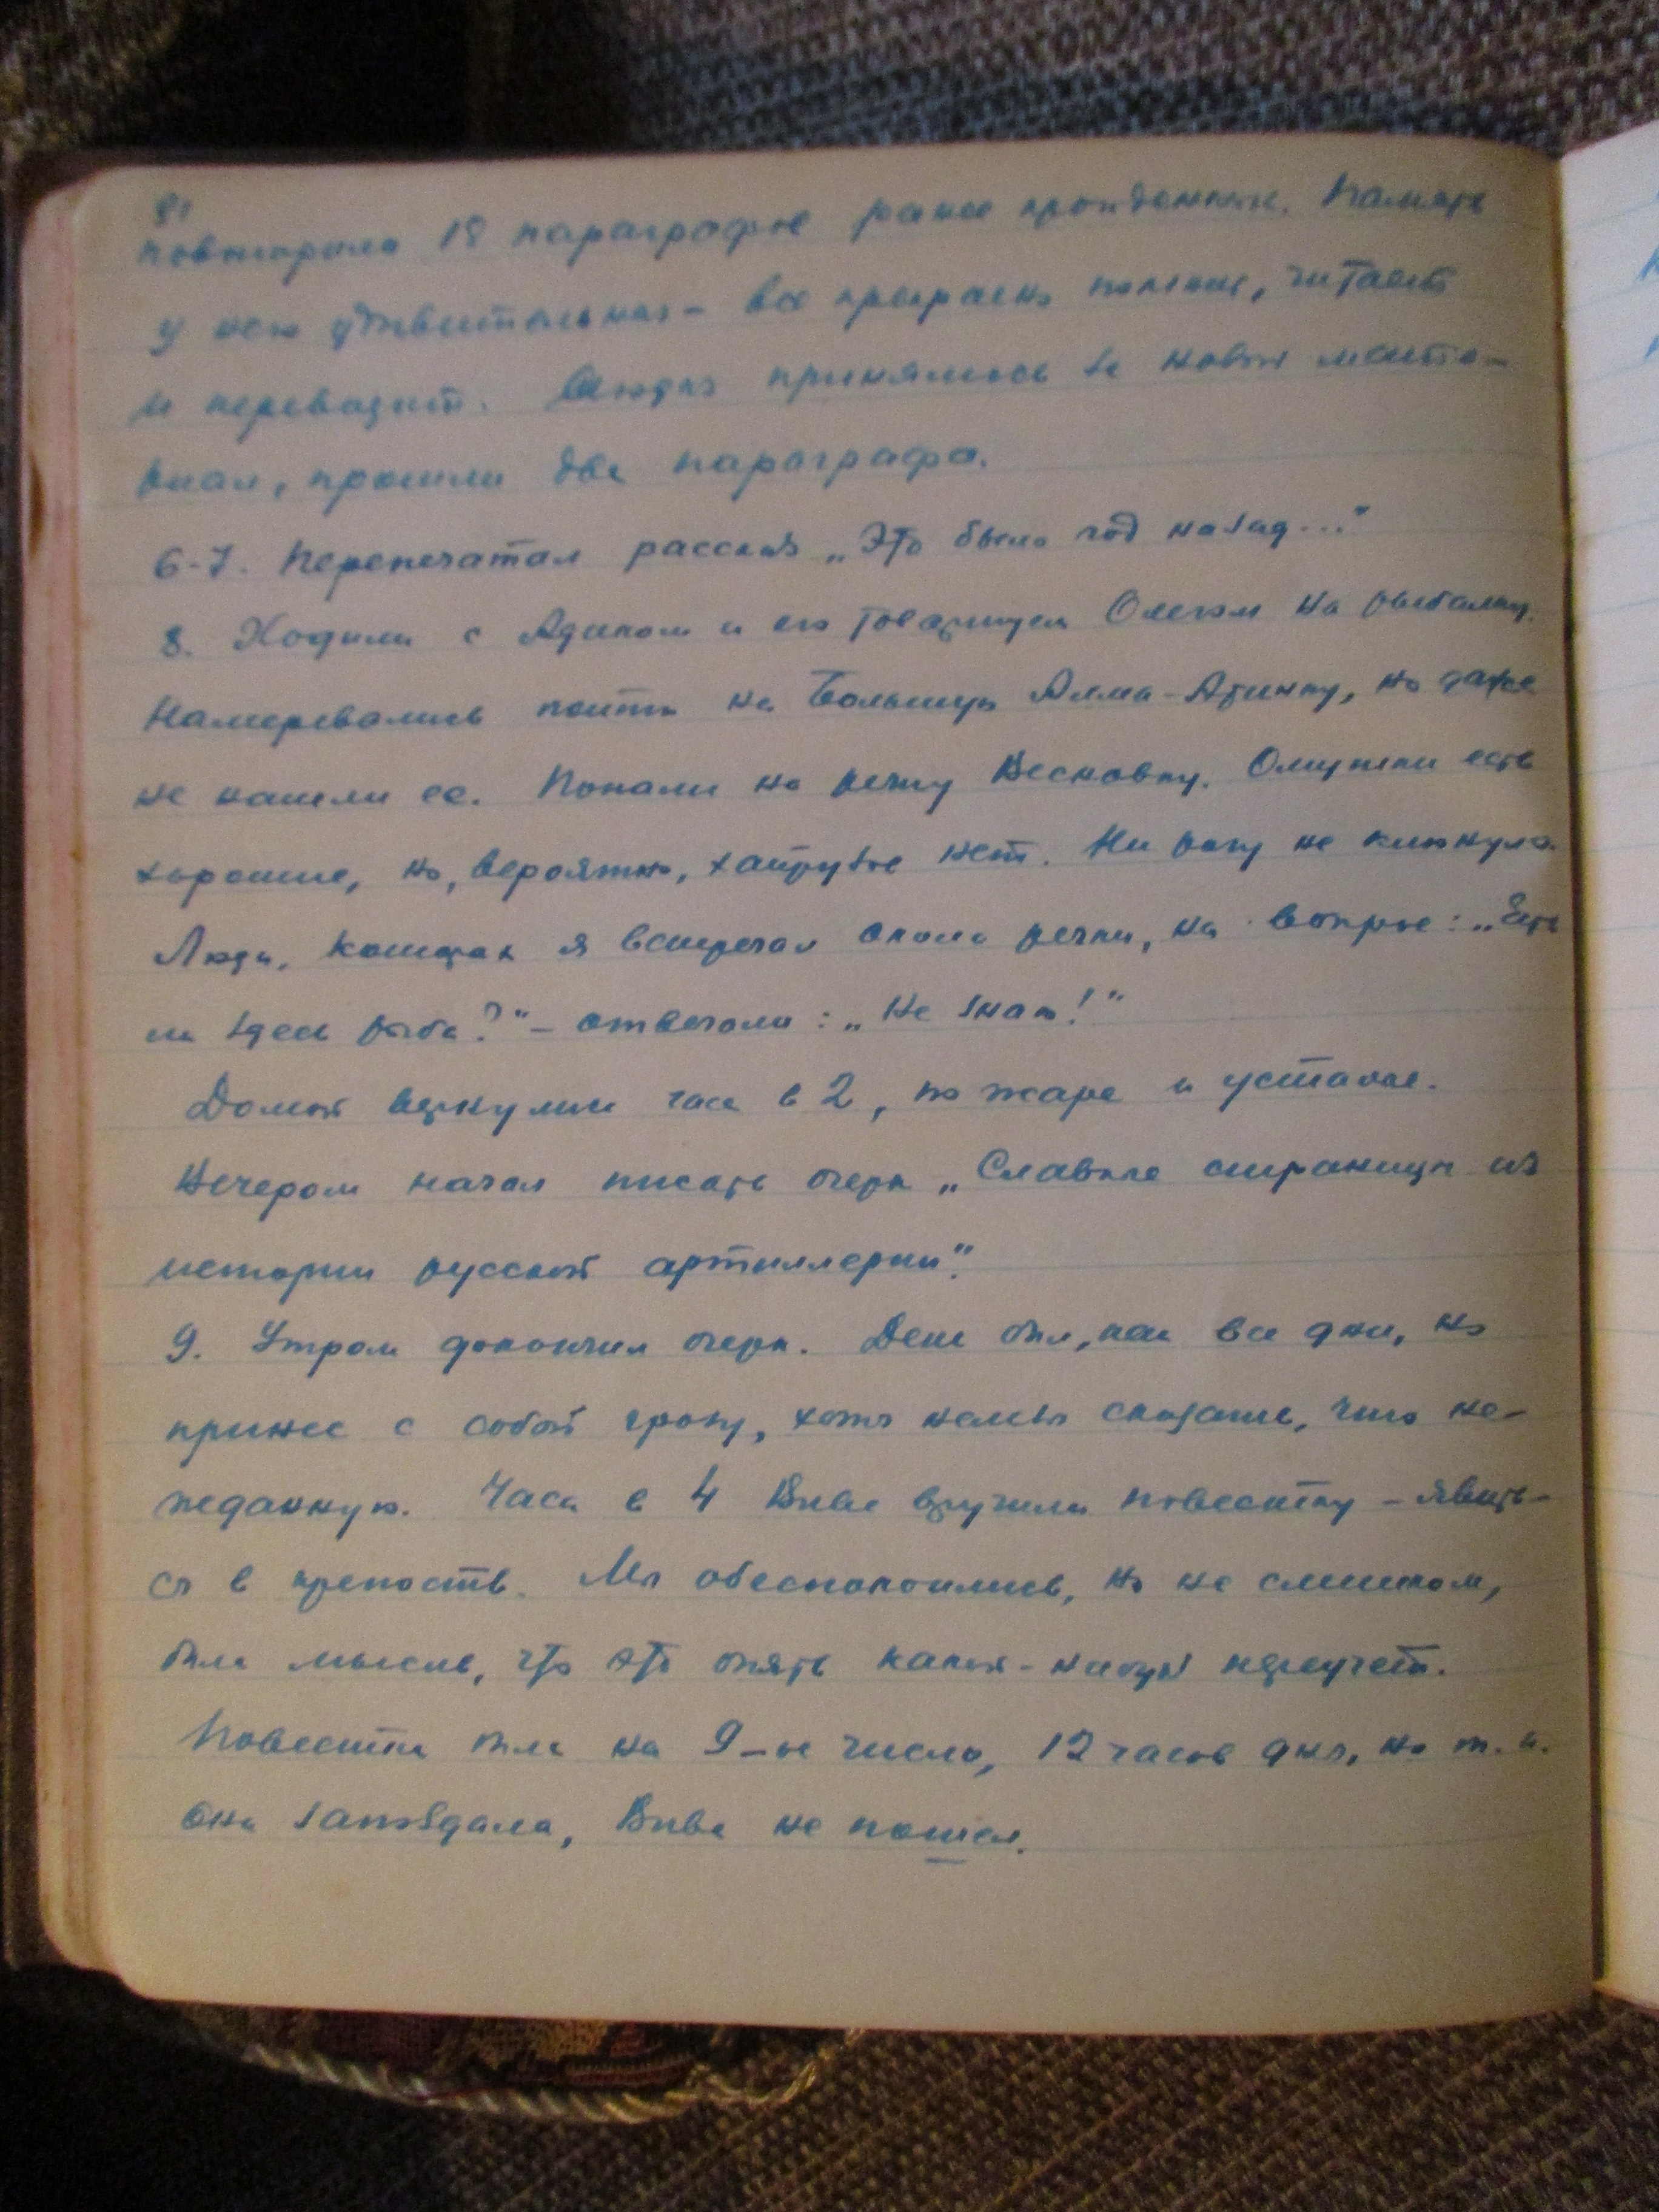 81
повторили 18 параграфов ранее пройденных. Память
у нее удивительная – все прекрасно помнит, читает
и переводит. принялись за новый мате-
риал, прошли два параграфа.
6-7. Перепечатал рассказ „Это было год назад..."
8. Ходили с Адиком и его товарищем Олегом на рыбалку.
Намеревались пойти на Большую Алма-Атинку, но даже
не нашли ее. Попали на речку Весновку. Омутки есть
хорошие, но, вероятно, хайрузов нет. Ни разу не клюнуло.
Люди, которых я встречал около речки, на вопрос: „Есть
ли здесь рыба?" – отвечали: „Не знаю!"
Домой вернулись часа в 2, по жаре и усталые.
Вечером начал писать очерк „Славные страницы из
истории русской артиллерии".
9. Утром докончил очерк. День был, как все дни, но
принес с собой грозу, хотя нельзя сказать, что не-
жданную. Часа в 4 Виве вручили повестку – явить-
ся в крепость. Мы обеспокоились, но не слишком,
была мысль, что это опять какой-нибудь переучет.
Повестка была на 9-ое число, 12 часов дня, но т.к.
она запоздала, Вива не пошел.